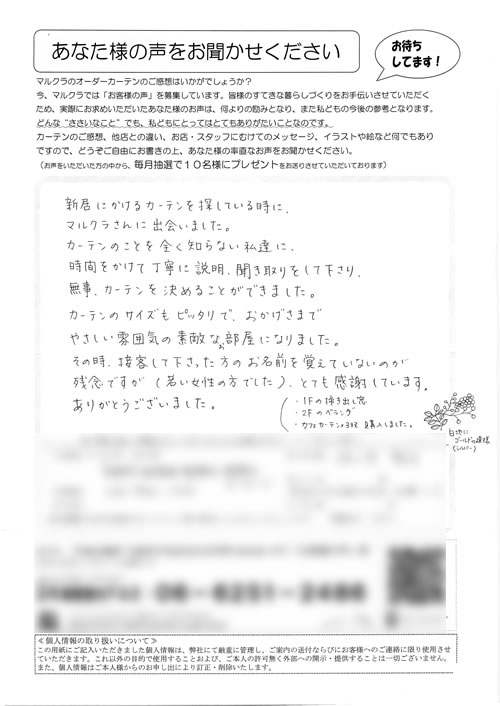 あなた様の声をお聞かせください
お待ち
してます！
マルクラのオーダーカーテンのご感想はいかがでしょうか？
今、マルクラでは「お客様の声」を募集しています。皆様のすてきな暮らしづくりをお手伝いさせていただく
ため、実際にお求めいただいたあなた様のお声は、何よりの励みとなり、また私どもの今後の参考となります。
どんな“ささいなこと”でも、私どもにとってはとてもありがたいことなのです。
カーテンのご感想、他店との違い、お店・スタッフにむけてのメッセージ、イラストや絵など何でもあり
ですので、どうぞご自由にお書きの上、あなた様の率直なお声をお聞かせください。
（お声をいただいた方の中から、毎月抽選で１０名様にプレゼントをお送りさせていただいております）
新居にかけるカーテンを探している時に、
マルクラさんに出会いました。
カーテンのことを全く知らない私達に、
時間をかけて丁寧に説明、聞き取りをして下さり、
無事、カーテンを決めることができました。
カーテンのサイズもピッタリで、おかげさまで
やさしい雰囲気の素敵なお部屋になりました。
その時、接客して下さった方のお名前を覚えていないのが
残念ですが（若い女性の方でした）、とても感謝しています。
ありがとうございました。
・1Fの掃き出し窓
・2Fのベランダ
・カフェカーテン×3枚 購入しました。
白地に
ゴールドの模様
(シルバー)
≪個人情報の取り扱いについて≫
この用紙にご記入いただきました個人情報は、弊社にて厳重に管理し、ご案内の送付ならびにお客様へのご連絡に限り使用させ
ていただきます。これ以外の目的で使用することおよび、ご本人の許可無く外部への開示・提供することは一切ございません。
また、個人情報はご本人様からのお申し出により訂正・削除いたします。